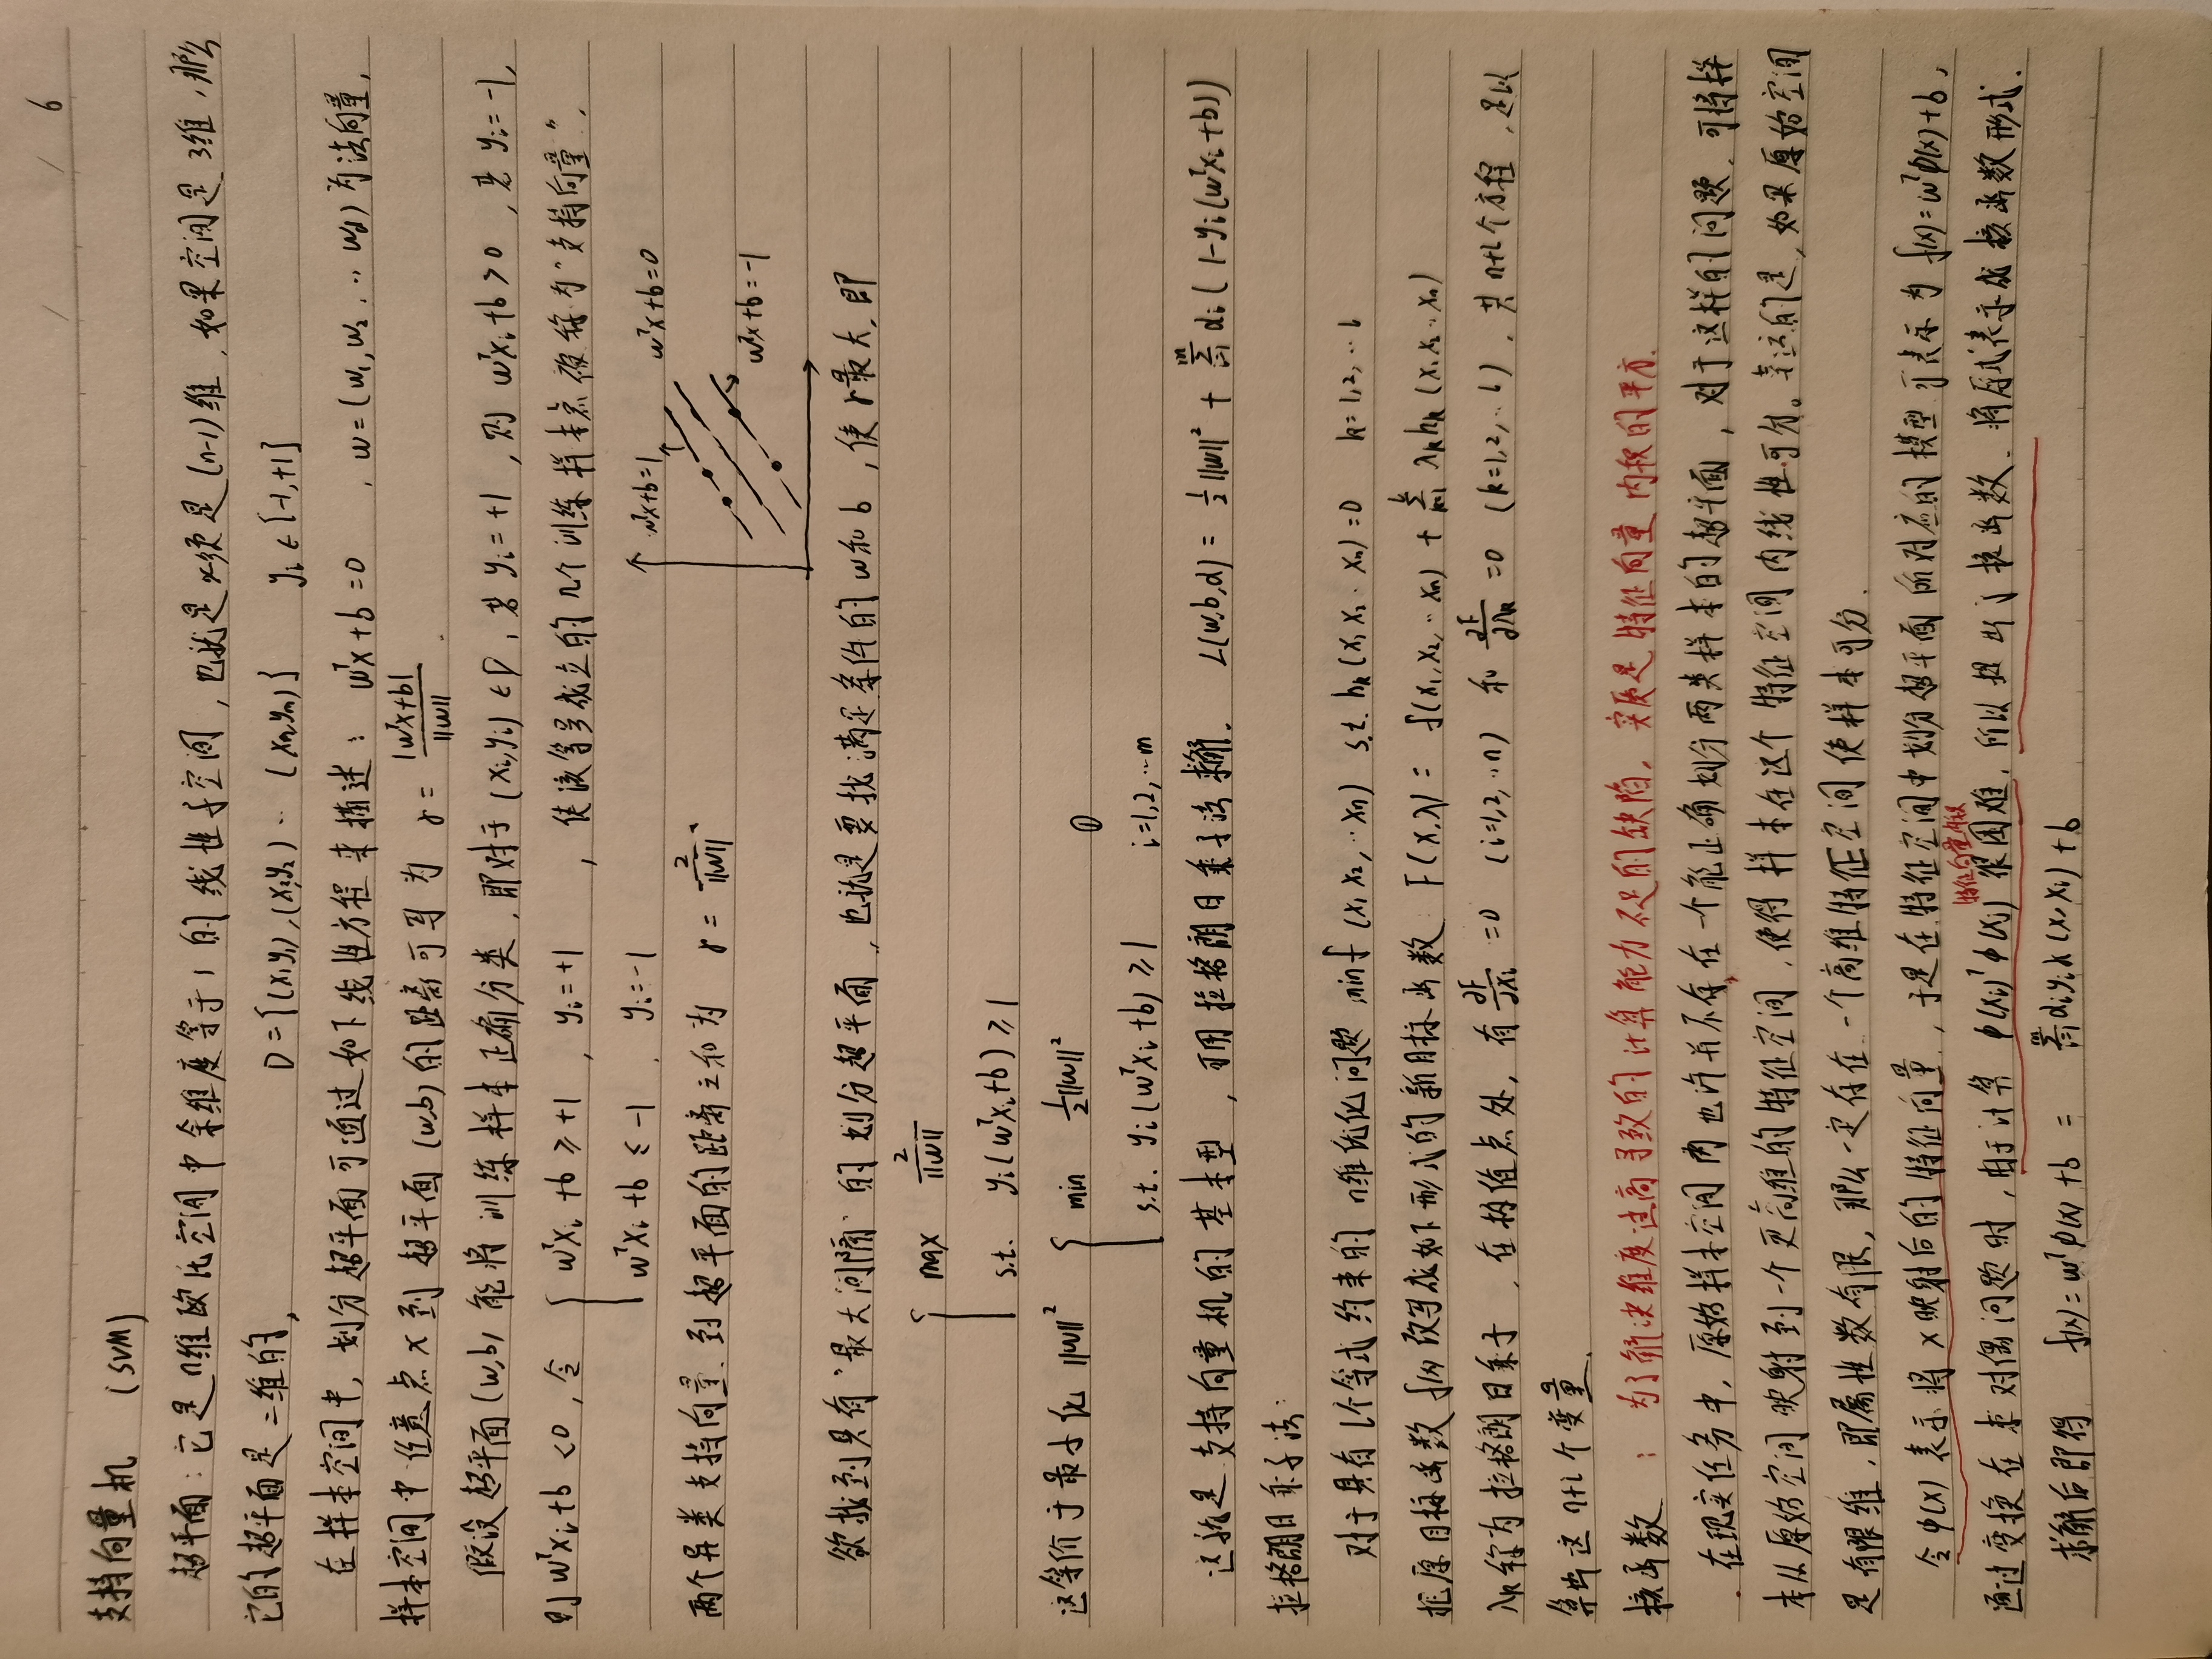 6
支持向量机 (SVM)
超平面:它是n维欧氏空间中余维度等于1的线性子空间,也就是必须是(n-1)维.如果空间是3维,那么
它的超平面是二维的,
D={(x₁y₁),(x₂y₂)…(xₘyₘ)} yᵢ∈{-1,+1}
在样本空间中,划分超平面可通过如下线性方程来描述: wᵀx+b=0 , w=(w₁,w₂,…wd)为法向量,
样本空间中任意点x到超平面(w,b)的距离可写为 r=|wᵀx+b|/||w||.
假设超平面(w,b)能将训练样本正确分类,即对于(xᵢ,yᵢ)∈D,若yᵢ=+1,则wᵀxᵢ+b>0,若yᵢ=-1,
则wᵀxᵢ+b<0,令 { wᵀxᵢ+b≥+1 , yᵢ=+1 , 使该等号成立的几个训练样本点被称为"支持向量",
wᵀxᵢ+b≤-1 , yᵢ=-1
wᵀx+b=1
wᵀx+b=0
wᵀx+b=-1
两个异类支持向量到超平面的距离之和为 r=2/||w||
欲找到具有"最大间隔"的划分超平面,也就是要找满足条件的w和b,使r最大,即
{ max 2/||w||
s.t. yᵢ(wᵀxᵢ+b)≥1
这等价于最小化||w||² { min ½||w||² ①
s.t. yᵢ(wᵀxᵢ+b)≥1 i=1,2,…m
这就是支持向量机的基本型,可用拉格朗日乘子法求解. L(w,b,α)=½||w||²+∑ᵢ₌₁ᵐαᵢ(1-yᵢ(wᵀxᵢ+b))
拉格朗日乘子法:
对于具有l个等式约束的n维优化问题 minf(x₁x₂,…xₙ) s.t. hₖ(x₁x₂…xₙ)=0 k=1,2,…l
把原目标函数f(x)改写成如下形式的新目标函数 F(x,λ)=f(x₁,x₂,…xₙ)+∑λₖhₖ(x₁x₂…xₙ)
λₖ称为拉格朗日乘子,在极值点处,有 ∂F/∂xᵢ=0 (i=1,2,…n) 和 ∂F/∂λₖ=0 (k=1,2,…l),共n+l个方程,足以
算出这n+l个变量.
核函数 : 为了解决维度过高导致的计算能力不足的缺陷,实质是特征向量内积的平方.
在现实任务中,原始样本空间内也许并不存在一个能正确划分两类样本的超平面,对于这样的问题,可将样
本从原始空间映射到一个更高维的特征空间,使得样本在这个特征空间内线性可分。幸运的是,如果原始空间
是有限维,即属性数有限,那么一定存在一个高维特征空间使样本可分.
令φ(x)表示将x映射后的特征向量,于是在特征空间中划分超平面所对应的模型可表示为f(x)=wᵀφ(x)+b,
特征向量内积
通过变换在求对偶问题时,由于计算φ(xᵢ)ᵀφ(xⱼ)很困难,所以提出了核函数.将后式表示成核函数形式.
求解后即得 f(x)=wᵀφ(x)+b = ∑ᵢ₌₁ᵐαᵢyᵢk(x,xᵢ)+b